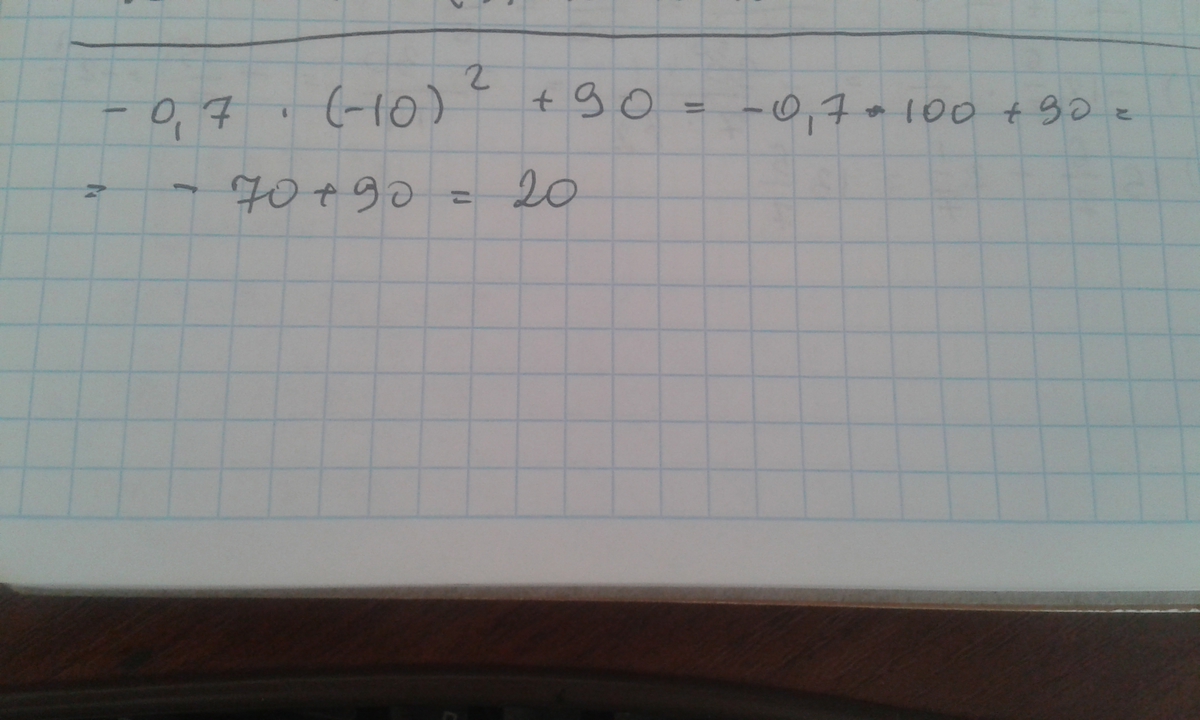 - 0,7 · (-10)² + 90 = -0,7 · 100 + 90 =
= - 70 + 90 = 20